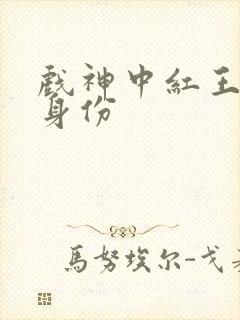 戲神中紅王
身份
馬努埃尔-戈